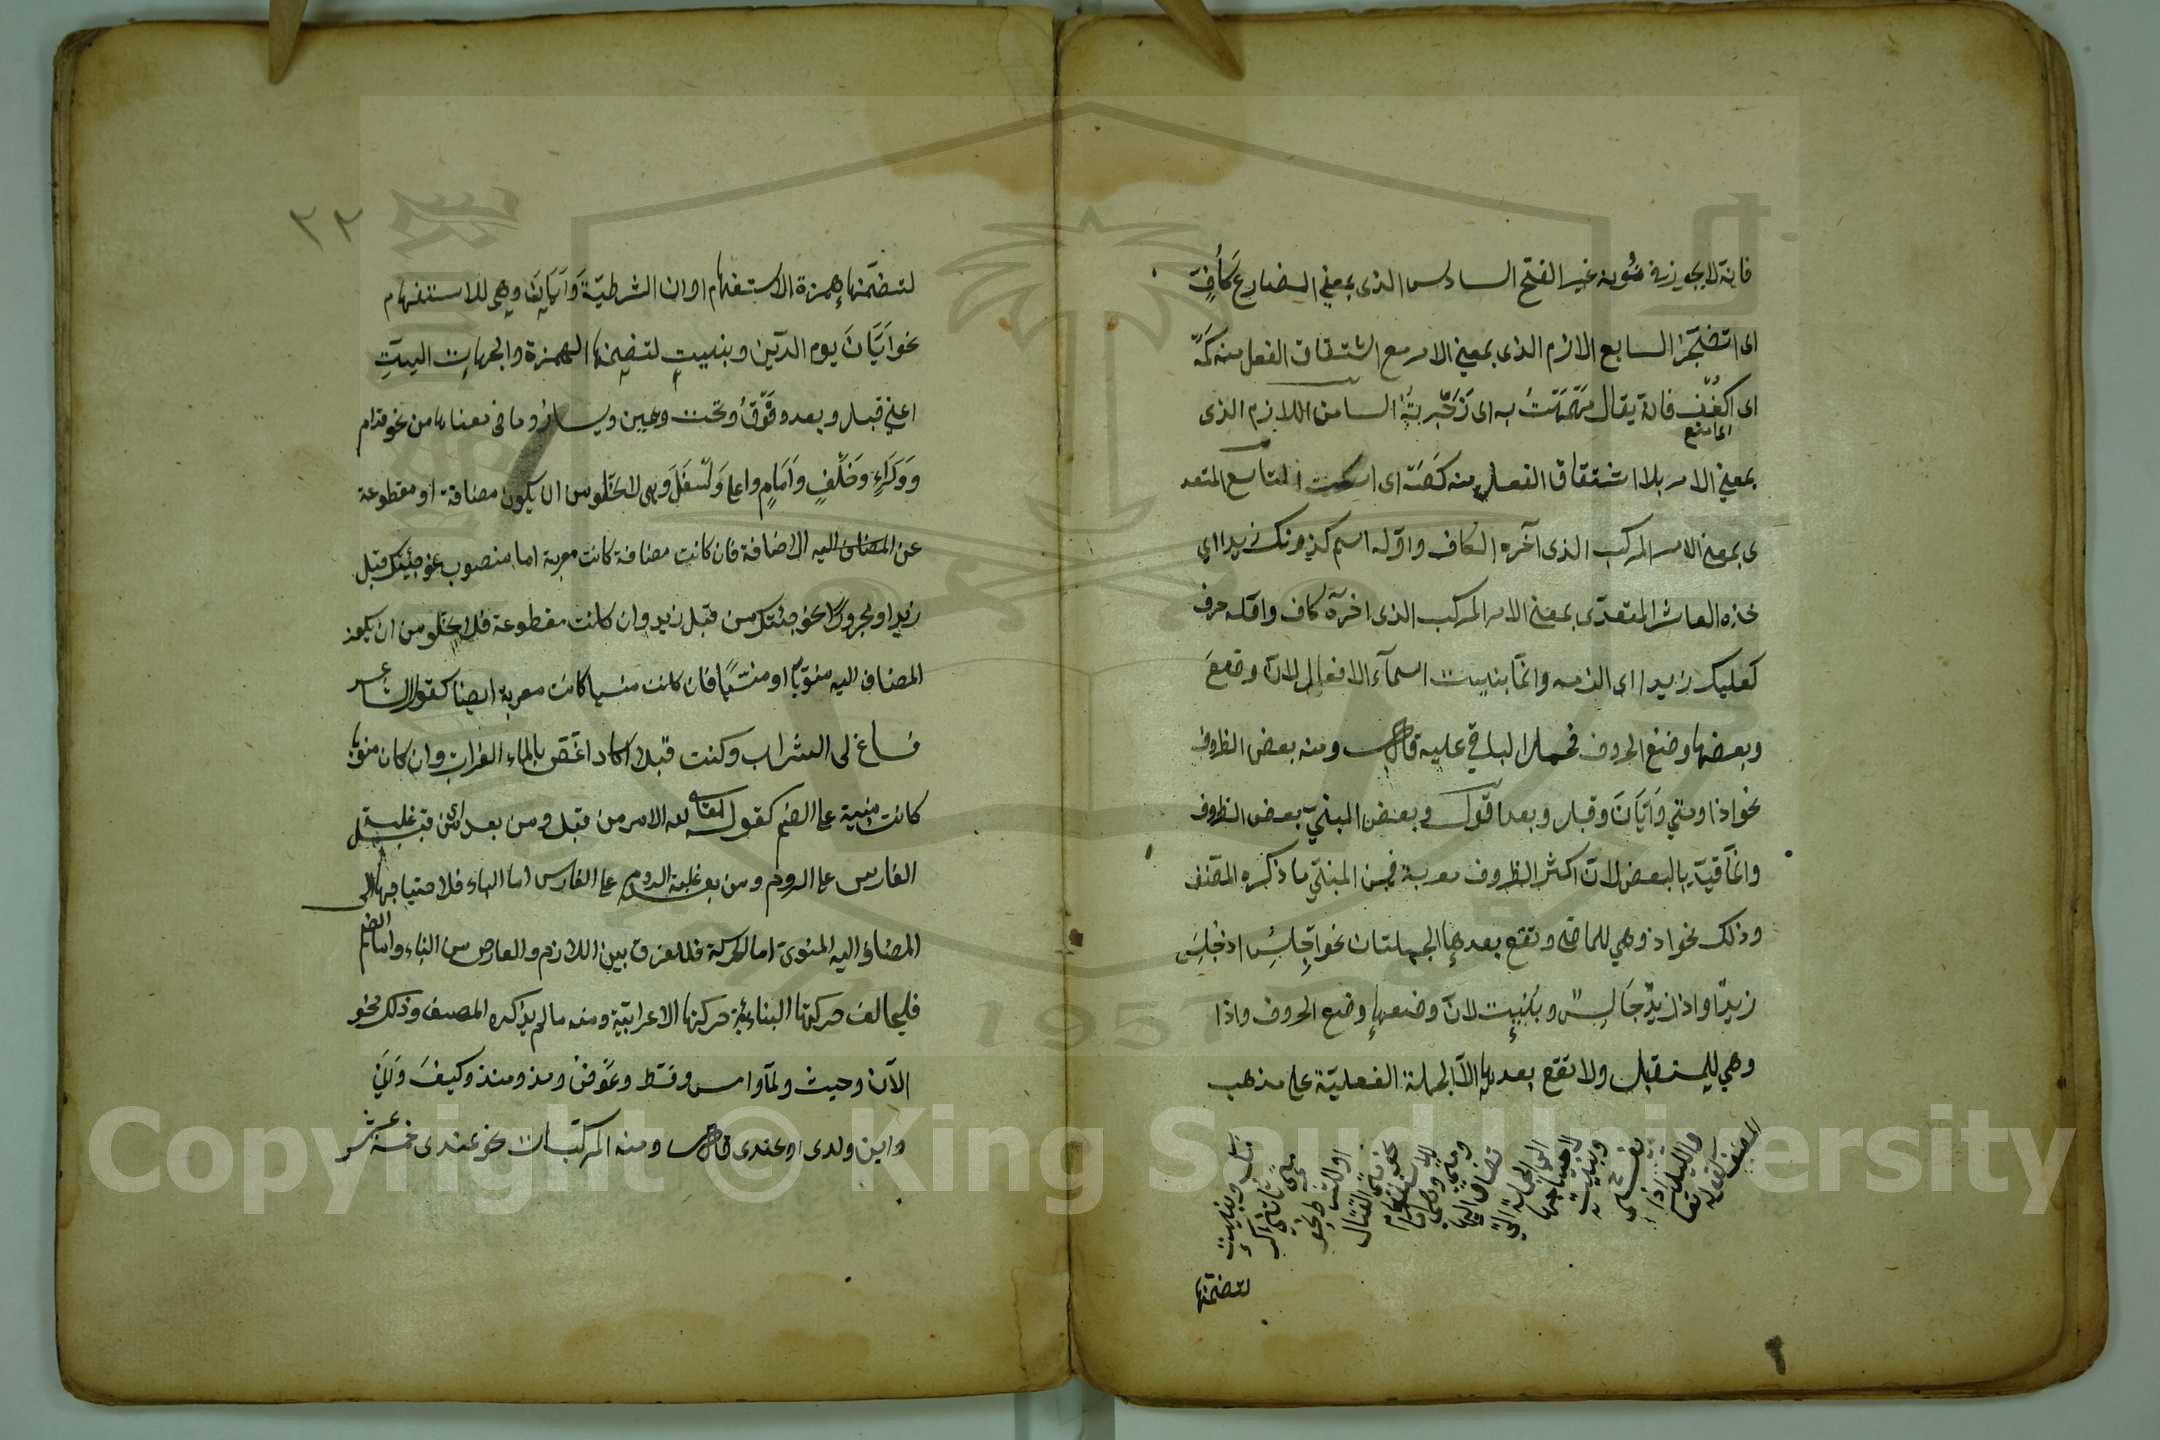 فانه لا يجوز في نونه غير الفتح السادس الذى بمعنى المضارع كأفٍّ
اى اتضجّر السابع اللازم الذى بمعنى الامر مع اشتقاق الفعل منه كمَهْ
اى اكفُفْ فانه يقال مَهْمَهْتُ به اى زَجَرْتُهُ الثامن اللازم الذى
بمعنى الامر بلا اشتقاق الفعل منه كَصَهْ اى اسكت التاسع المتعد
ى بمعنى الامر المركب الذى آخره الكاف واوّله اسم كدونك زيدا اى
خذه العاشر المتعدّى بمعنى الامر المركب الذى اخره كاف واوّله حرف
كعليك زيدا اى الزمه وانّما بنيت اسمآء الافعال لانّ وضعَ
وبعضها وضع الحروف فحمل الباقي عليه قال ومنه بعض الظروف
نحو اذا ومتي وَايّانَ وقبل وبعد اقول وبعض المبنيّ بعض الظروف
وانّما قيّد بالبعض لانّ اكثر الظروف معربة فمن المبنيّ ما ذكره المصّنف
وذلك نحو اذ وهي للماضي وتقع بعدها الجملتان نحو اجلِسُ اذ جلسَ
زيدٌ او اذ زيدٌ جَالِسٌ وبُنِيت لانّ وضعها وضع الحروف واذا
وهي للمستقبل ولا تقع بعدها الّا الجملة الفعليّة علي مذهب
المصنف
كقوله تعا
والليل اذا
يغشى
وبنيت
لاحتياجها
الى الجملة التى
تضاف اليها
ومتى وهى اما
للاستفهام
نحو متى القتال
او للشرط نحو
متى تاتنى اكر
مك وبنيت
لتضمّنها
٣٢
لتضمّنها همزة الاستفهام او ان الشرطيّة وَايّانَ وهي للاستفهام
نحو ايَّانَ يوم الدّين وبنيت لتضمنها الهمزة والجهات الستّ
اعني قبل وبعد وفَوْقُ وتحت ويمين ويسار وما فى معناها من نحو قدام
ووَرَاءٍ وخَلْفٍ وَامَامٍ واعلى وَاسْفَلَ وهى لا تخلو من ان يكون مضافة او مقطوعة
عن المضاف اليه الاضافة فان كانت مضافة كانت معربة اما منصوب نحو جئتك قبل
زيد او مجرورًا نحو جئتك من قبل زيد وان كانت مقطوعة فلا تخلو من ان يكون
المضاف اليه منويًّا او منسيًّا فان كانت منسيا كانت معربة ايضا كقول الشاعر
فساغ لى الشراب وكنت قبلا اكاد اغصّ بالماء الفرات وان كان منويا
كانت مبنية على الضم كقوله تعالى لله الامر من قبل ومن بعد اى من قبل غلبة
الفارس على الروم ومن بعد غلبة الروم على الفارس اما البناء فلاحتياجها الى
المضاف اليه المنوى اما الحركة فللفرق بين اللازم والعارض من البناء واما الضم
فليخالف حركتها البنائية حركتها الاعرابيّة ومنه مالم يذكره المصنف وذلك نحو
الآن وحيث ولمّا وامس وقطّ وعَوْضُ ومذ ومنذ وكيفَ وَانّى
واين ولدى او عندى قال ومنه المركّبات نحو عندى خمسة عشر